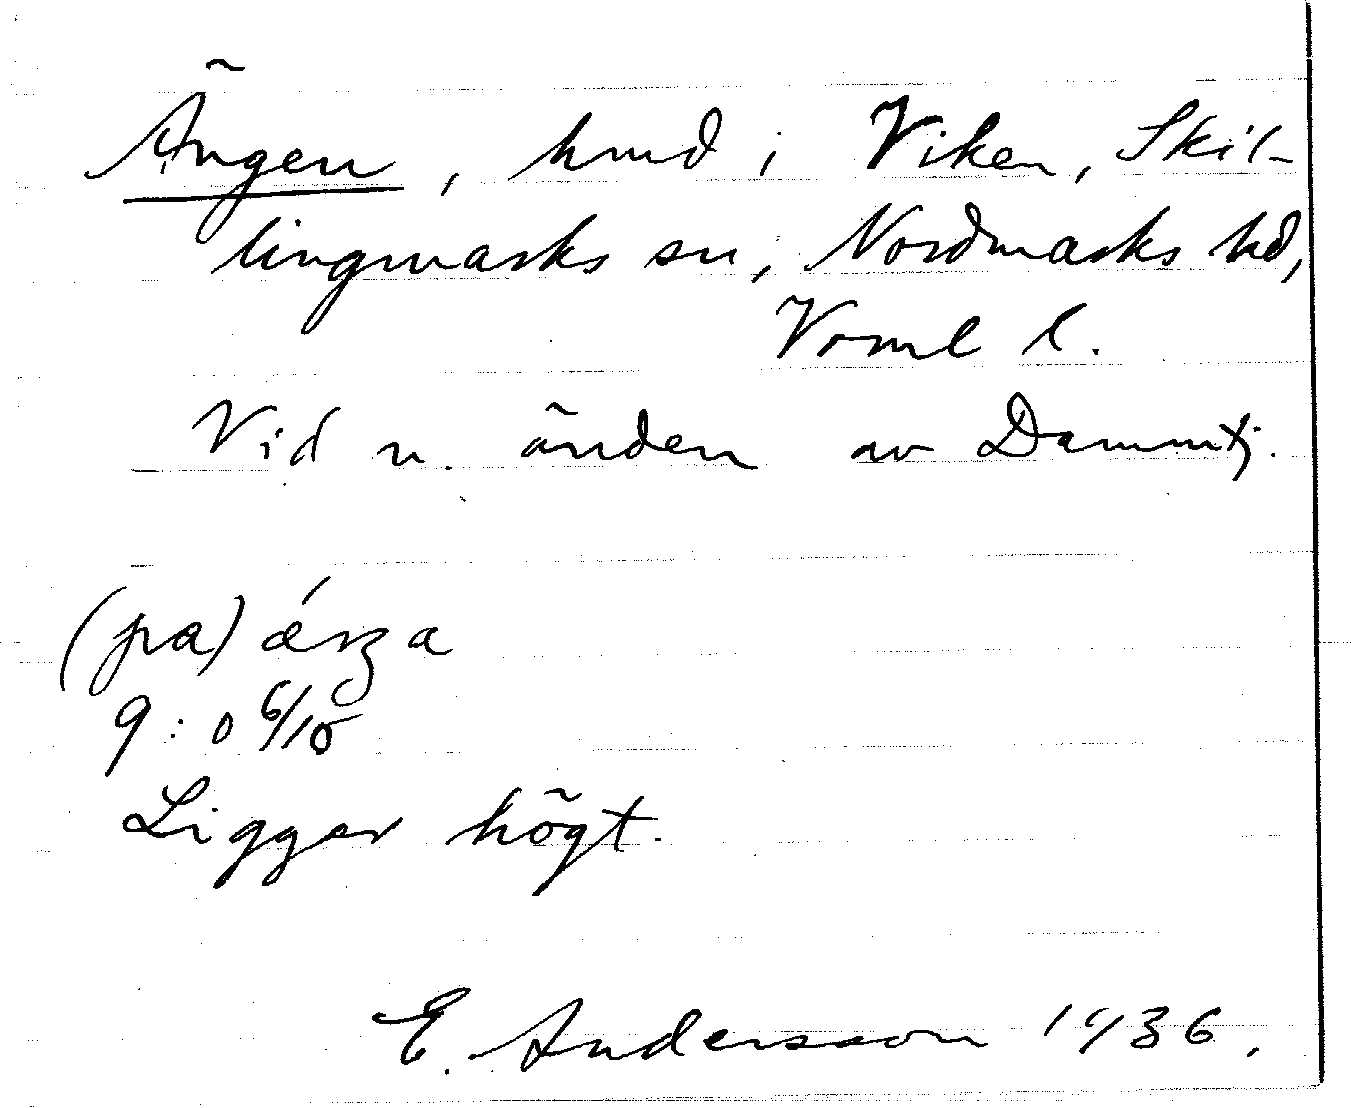 Ängen, hmd i Viken, Skil-
lingmarks sn, Nordmarks hd,
Vrml l.
Vid n. änden av Dammtj.
(pa) ǽŋa
9:0 6/10
Ligger högt.
E. Andersson 1936.